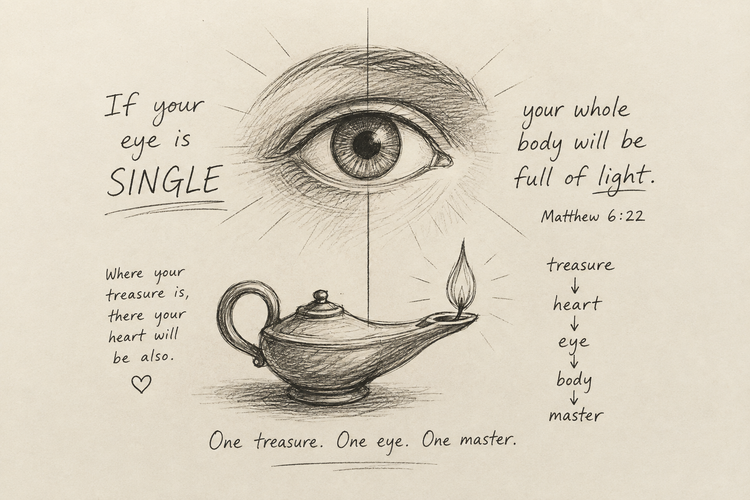 If your
eye is
SINGLE
your whole
body will be
full of light.
Matthew 6:22
Where your
treasure is,
there your
heart will
be also.
treasure
heart
eye
body
master
One treasure. One eye. One master.